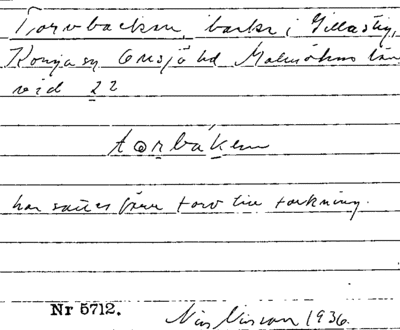 Torvbacken, backe i Gillastig,
Konga sn Onsjö hd Malmöhus län
ved 22
tọrbáken
här sattes förr torv till torkning.
Nr 5712.
Nils Nilsson 1936.